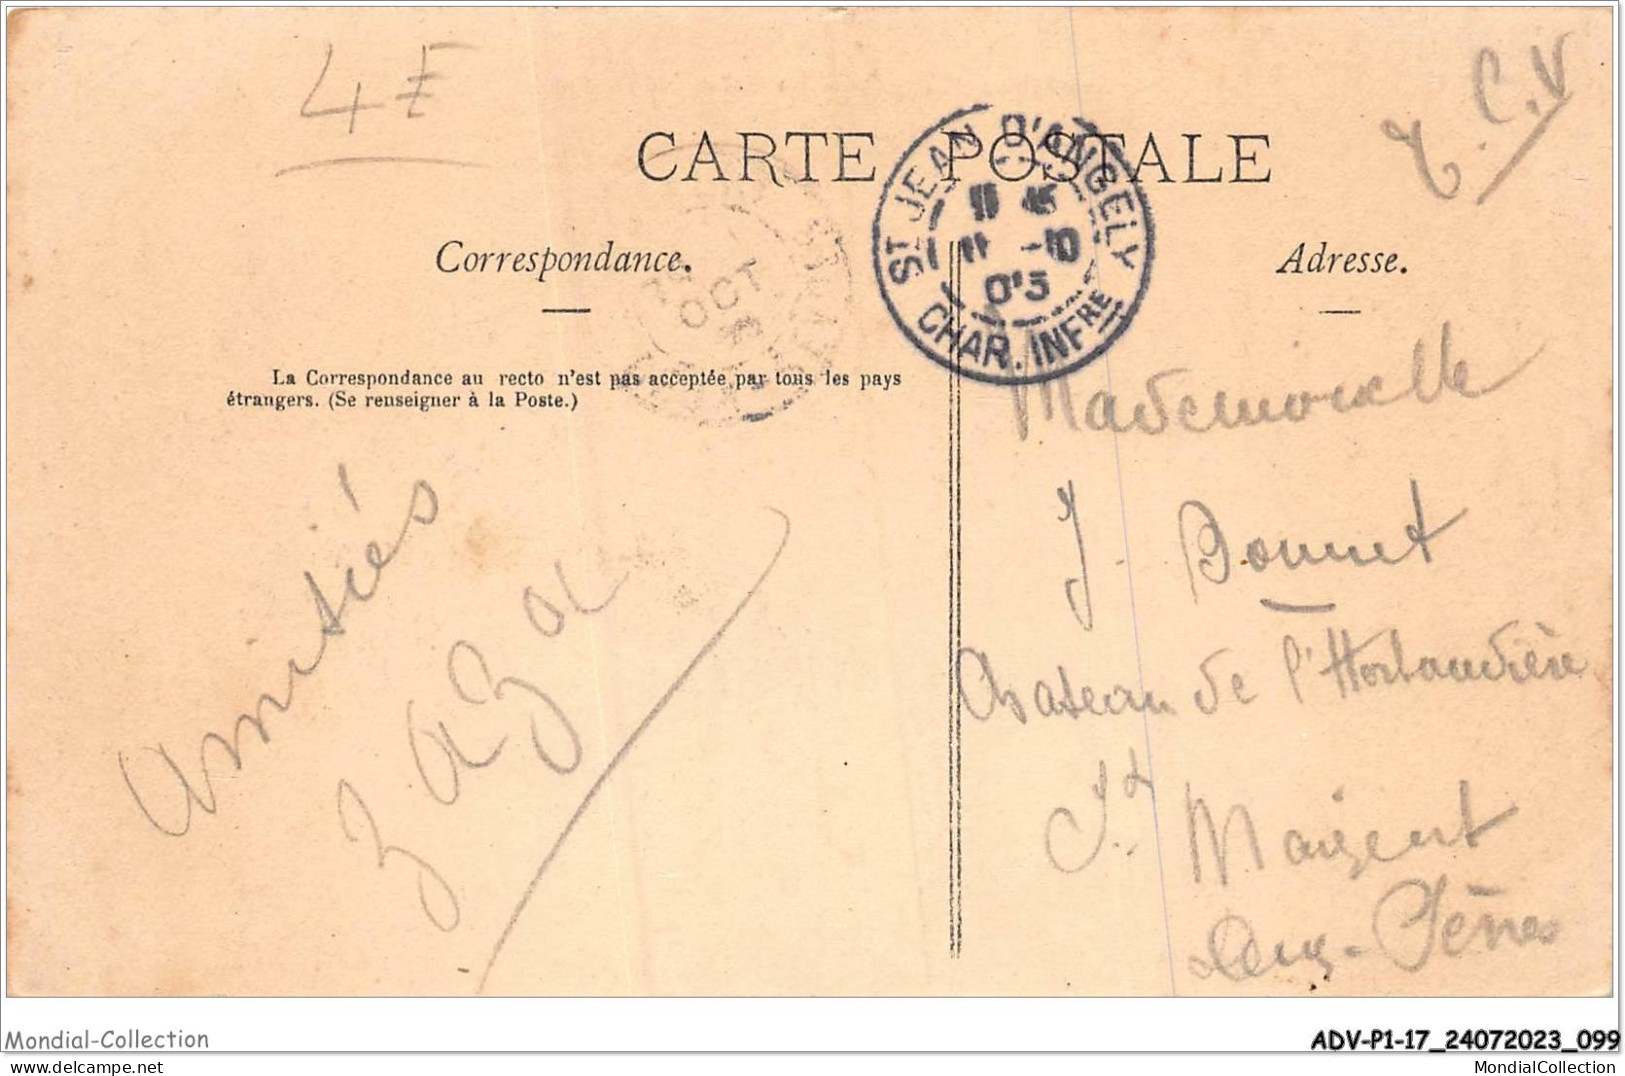 4 F
T. C.V
CARTE POSTALE
ST JEAN D'ANGELY
11 45
11 -10
05
CHAR. INFRE
OCT
Correspondance.
Adresse.
La Correspondance au recto n'est pas acceptée par tous les pays
étrangers. (Se renseigner à la Poste.)
Amitiés
Mademoiselle
J. Bonnet
Chateau de l'Hortaudière
St Maixent
Deux-Sèvres
Mondial-Collection
ADV-P1-17_24072023_099
delcampe.net
MondialCollection